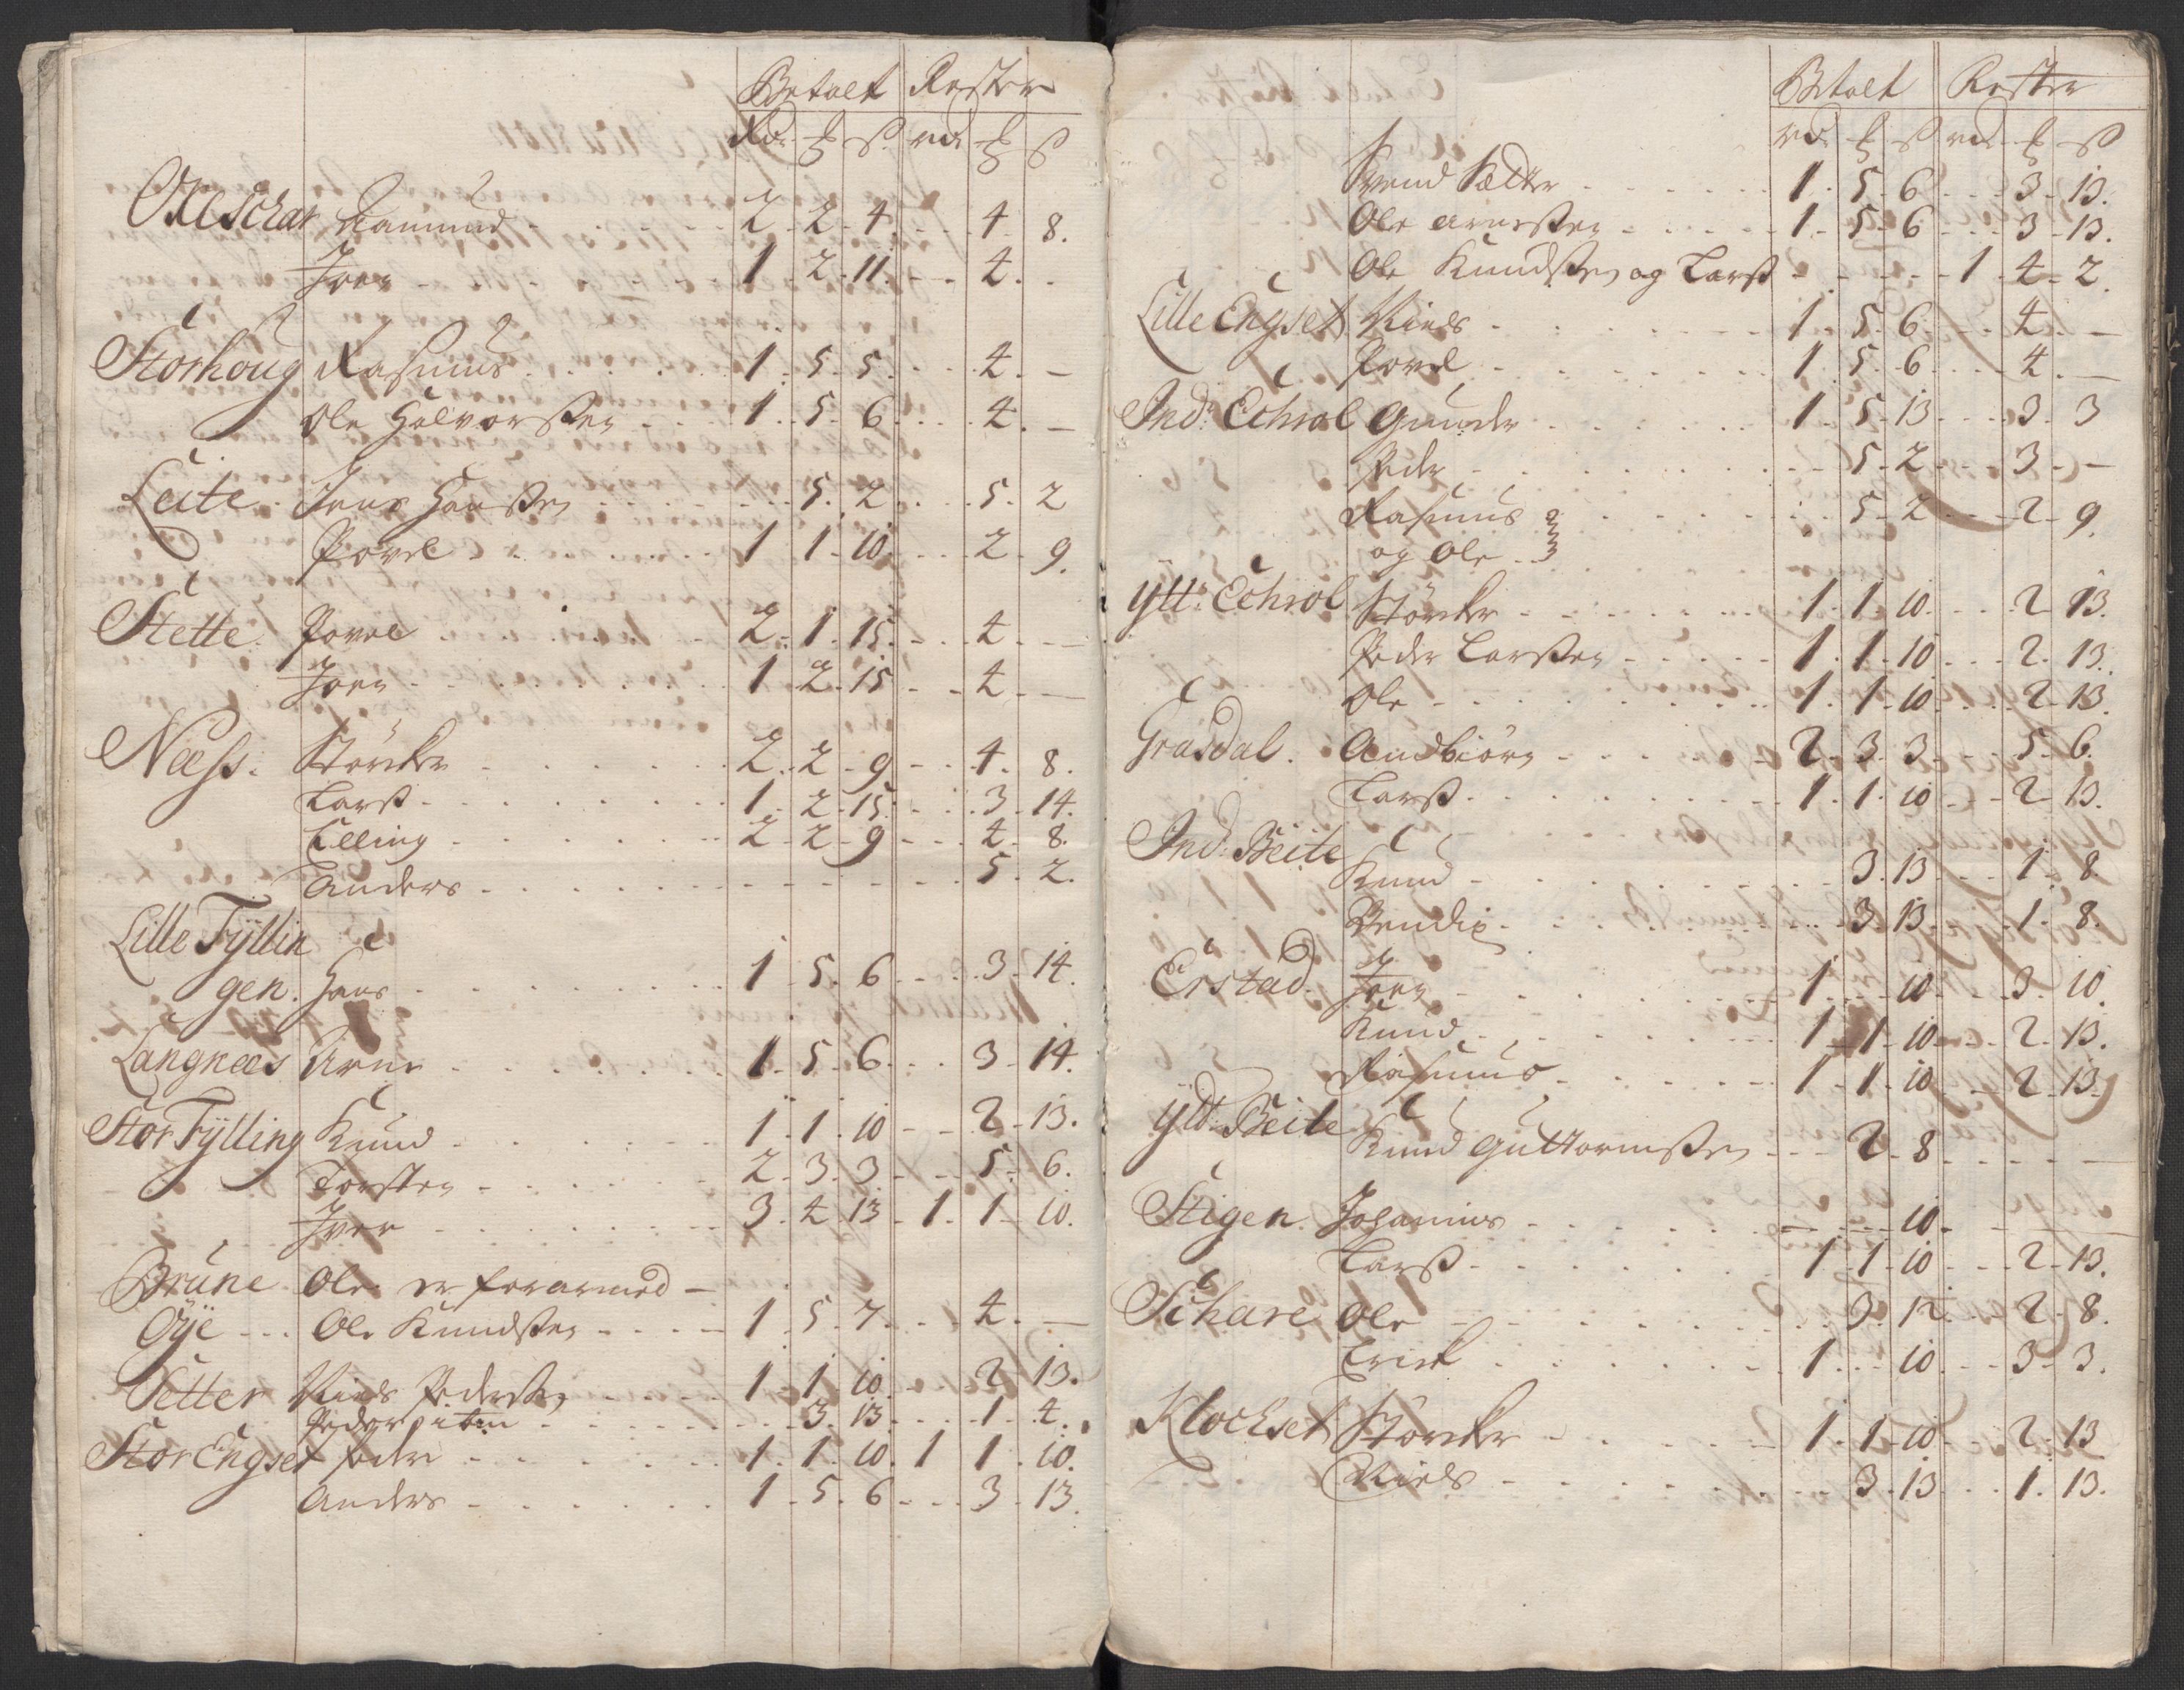 Betalt Rester
Rdr ₰ ß rd ₰ ß
Oxeschar Ramund 2 2 4 4 8.
Joen 1 2 11 4.
Storhoug Rasmus 1 5 5 4. -
Ole Halvorssen 1 5 6 4. -
Leite Jens Hanssen 5 2 5 2
Povel 1 1 10 2 9.
Stette Povel 2 1 15 4 -
Joen 1 2 15 4 -
Næss: Störcker 2 2 9 4 8.
Larss 1 2 15 3 14.
Elling 2 2 9 4 8.
Anders 5 2.
Lille Fÿllin
gen. Hans 1 5 6 3 14.
Langnæs Arne 1 5 6 3 14.
Stor Fÿlling Knud 1 1 10 2 13.
Torsten 2 3 3 5 6.
Iver 3 4 13 1 1 10.
Brune Ole er forarmed -
Öÿe Ole Knudssen 1 5 7 4. -
Setter Niels Pederssen 1 1 10 2 13.
Peder 3 13 1 4.
Stor Engset Peder 1 1 10 1 1 10.
Anders 1 5 6 3 13.
Betalt Rester
rd ₰ ß rd ₰ ß
Svend Sætter 1 5 6 3 13.
Ole Arnessen 1 5 6 3 13.
Ole Knudssen og Larss 1 4 2.
Lille Engset Niels 1 5 6 4 -
Povel 1 5 6 4 -
Ind: Echrol Gunder 1 5 13 3 3
Peder 5 2 3 -
Rasmus 5 2 2 9.
og Ole
ÿtt: Echrol Störcker 1 1 10 2 13.
Peder Larssen 1 1 10 2 13.
Ole 1 1 10 2 13.
Grasdal. Andbiörn 2 3 3 5 6.
Larss 1 1 10 2 13.
Ind: Beite
Knud 3 13 1 8.
Bendix 3 13 1 8.
Erstad. Joen 1 10 3 10.
Knud 1 1 10 2 13.
Rasmus 1 1 10 2 13
ÿtt: Beite Knud Guttormssen 2 8 -
Stigen. Johannes 10 -
Larss 1 1 10 2 13.
Schare Ole 3 12 2 8.
Erick 1 10 3 3.
Klochset Störcker 1 1 10 2 13
Niels 3 13 1 13.